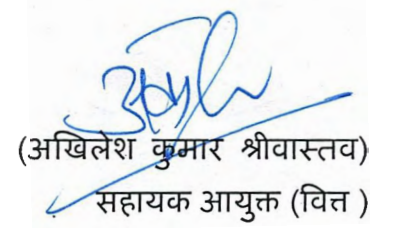 (अखिलेश कुमार श्रीवास्तव)
सहायक आयुक्त (वित्त )